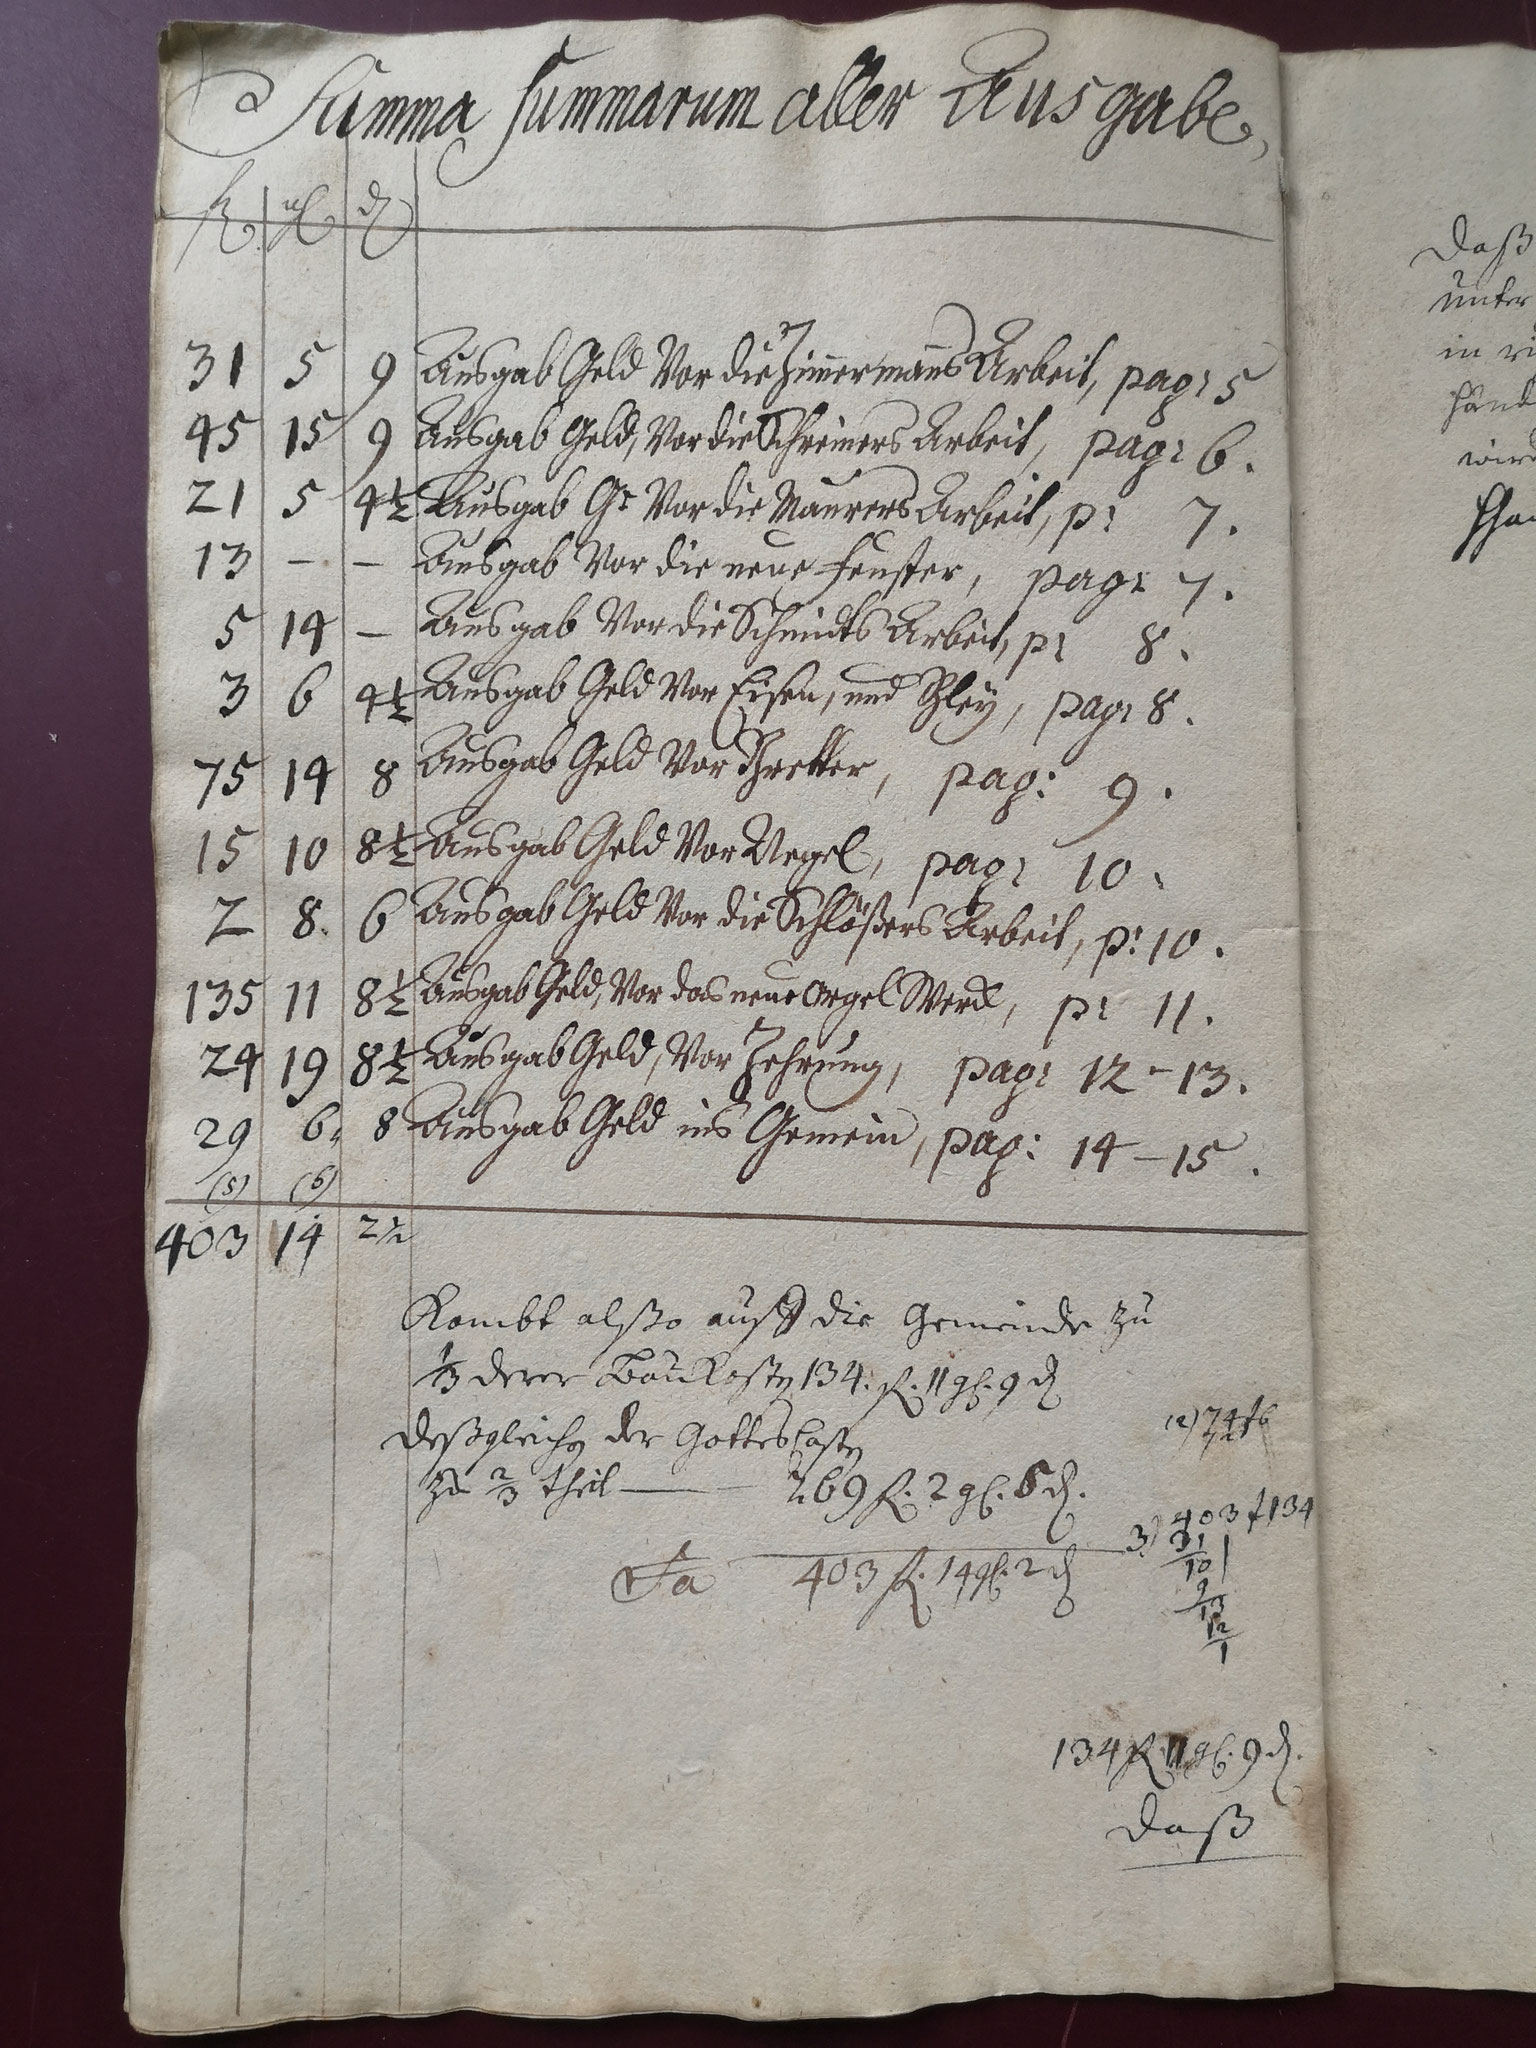 Summa Summarum aller Ausgabe,
fl. gl. d
31 5 9 Ausgab Geld Vor die Zimermans Arbeit, pag: 5
45 15 9 Ausgab Geld, Vor die Schreiners Arbeit, pag: 6.
21 5 4½ Ausgab G: Vor die Maurers Arbeit, p: 7.
13 – – Ausgab Vor die neue Fenster, pag: 7.
5 14 – Ausgab Vor die Schmidts Arbeit, p: 8.
3 6 4½ Ausgab Geld Vor Eisen, und Bley, pag: 8.
75 14 8 Ausgab Geld Vor Bretter, pag: 9.
15 10 8½ Ausgab Geld Vor Negel, pag: 10.
2 8. 6 Ausgab Geld Vor die Schlößers Arbeit, p: 10.
135 11 8½ Ausgab Geld, Vor das neue Orgel Werck, p: 11.
24 19 8½ Ausgab Geld, Vor Zehrung, pag: 12 - 13.
29 6. 8 Ausgab Geld ins Gemein, pag: 14 - 15.
(5) (6)
403 14 2½
Kombt alßo auff die Gemeinde zu
⅓ derer Baukosten 134. fl. 11 gl. 9 d
deßgleichen der Gottescasten
zu ⅔ theil — 269 fl. 2 gl. 5 d.
Sa 403 fl. 14 gl. 2 d
3) 403 f 134
31
10
9
13
12
1
134 fl. 11 gl. 9 d.
daß
daß
unter
in
wird